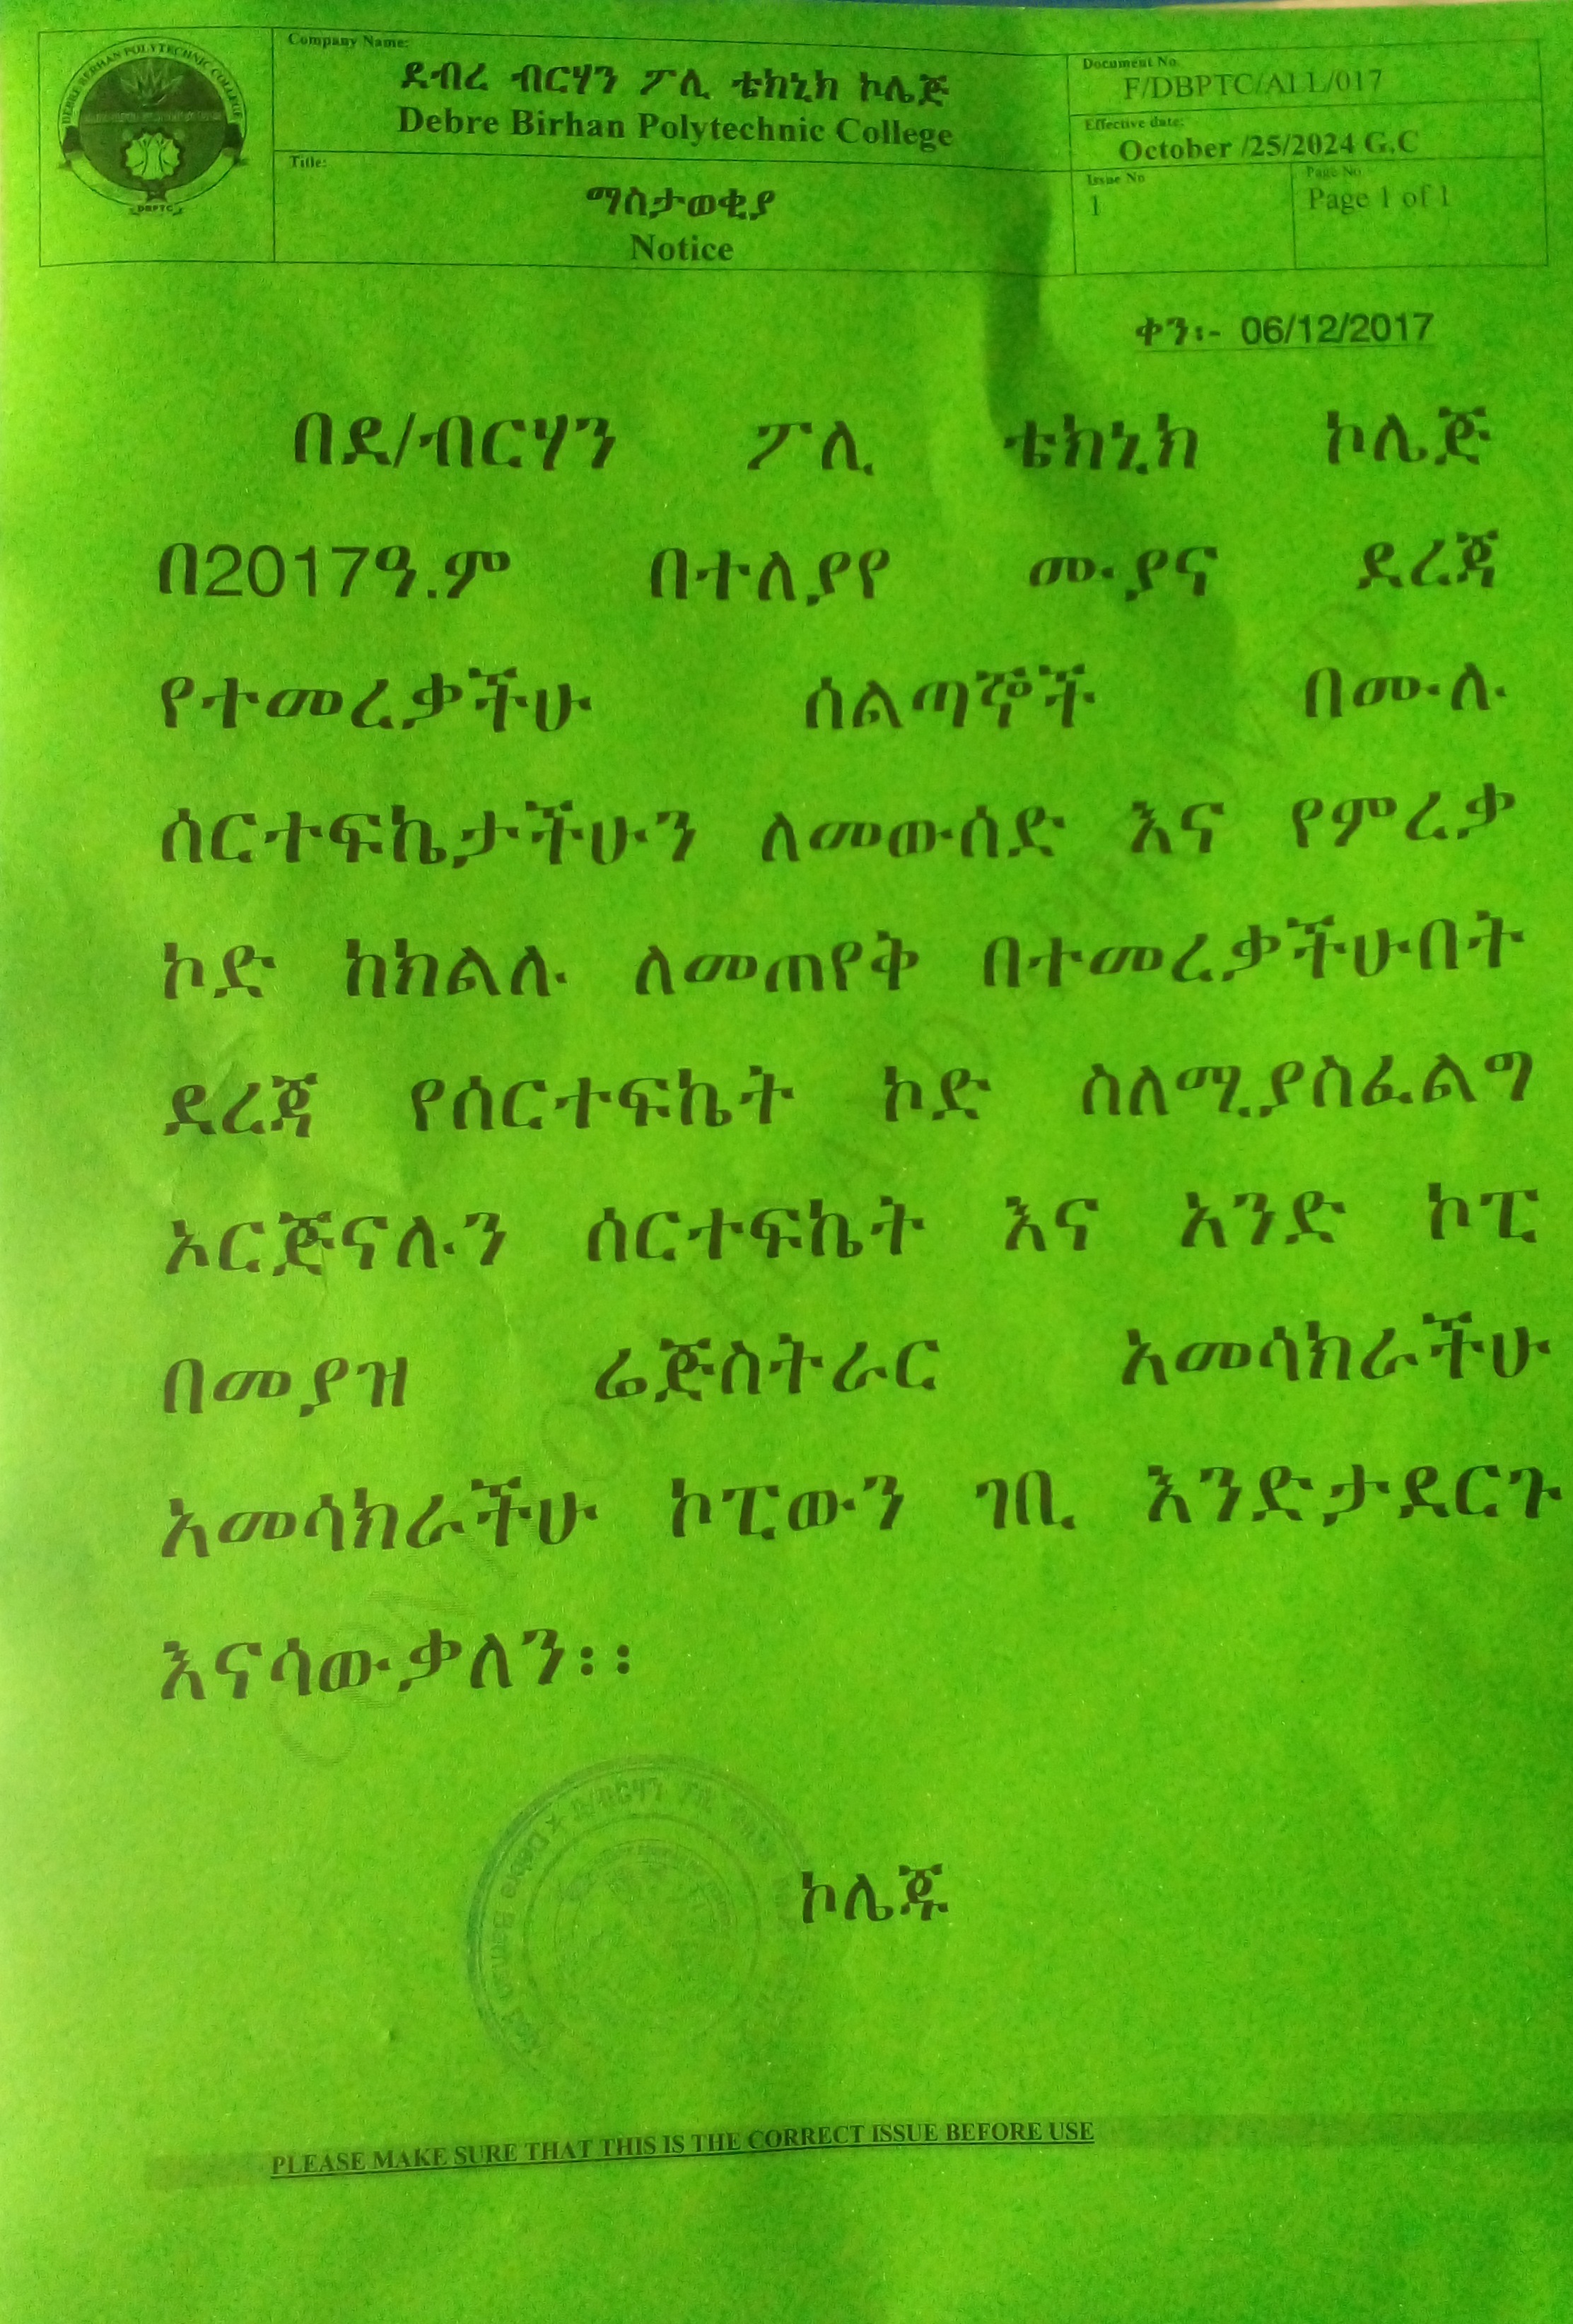 DEBRE BERHAN POLYTECHNIC COLLEGE
DBPTC
Company Name:
ደብረ ብርሃን ፖሊ ቴክኒክ ኮሌጅ
Debre Birhan Polytechnic College
Title:
ማስታወቂያ
Notice
Document No
F/DBPTC/ALL/017
Effective date:
October /25/2024 G.C
Issue No
1
Page No
Page 1 of 1
ቀን፡- 06/12/2017
በደ/ብርሃን ፖሊ ቴክኒክ ኮሌጅ
በ2017ዓ.ም በተለያየ ሙያና ደረጃ
የተመረቃችሁ ሰልጣኞች በሙሉ
ሰርተፍኬታችሁን ለመውሰድ እና የምረቃ
ኮድ ከክልሉ ለመጠየቅ በተመረቃችሁበት
ደረጃ የሰርተፍኬት ኮድ ስለሚያስፈልግ
ኦርጅናሉን ሰርተፍኬት እና አንድ ኮፒ
በመያዝ ሬጅስትራር አመሳክራችሁ
አመሳክራችሁ ኮፒውን ገቢ እንድታደርጉ
እናሳውቃለን፡፡
ኮሌጁ
PLEASE MAKE SURE THAT THIS IS THE CORRECT ISSUE BEFORE USE